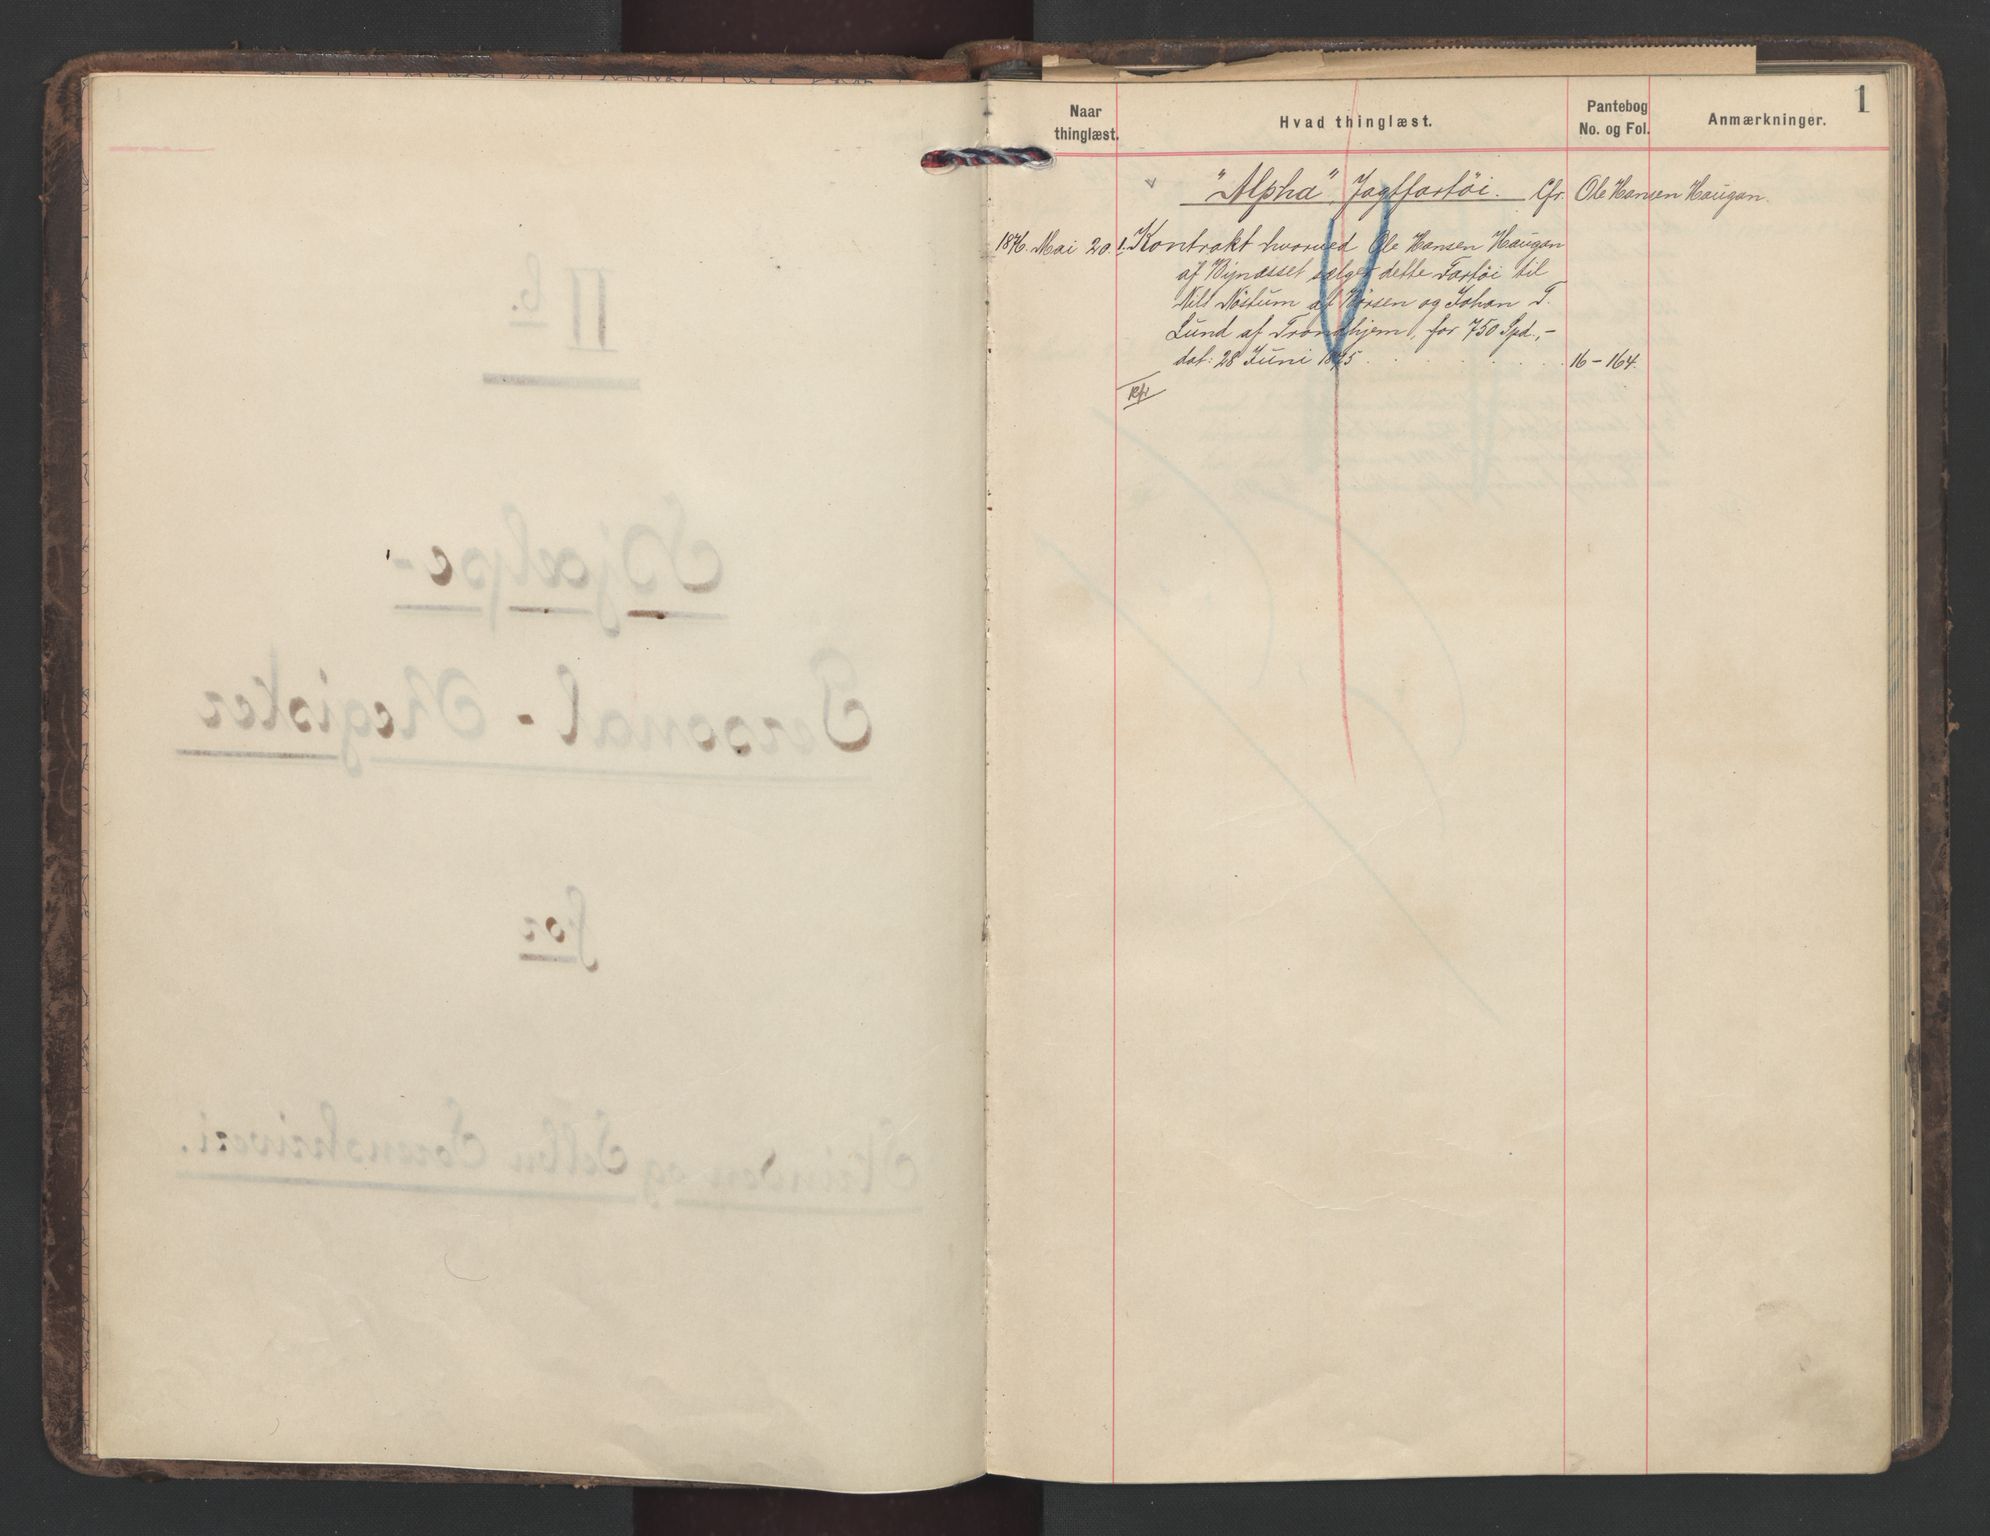 1
Naar thinglæst.
Hvad thinglæst.
Pantebog No. og Fol.
Anmærkninger.
"Alpha", Jagtfartøi. Cfr. Ole Hansen Haugan.
1876 Mai 20. 1. Kontrakt hvorved Ole Hansen Haugan
af Bynæsset sælger dette Fartøi til
Nils Nøstum af Børsen og Johan T.
Lund af Trondhjem, for 750 Spd.,-
dat: 28 Juni 1875 . . . . . . 16-164.
IIb.
Hjælpe-
Personal-Register
for
Strinden og Selbu Sorenskriveri.